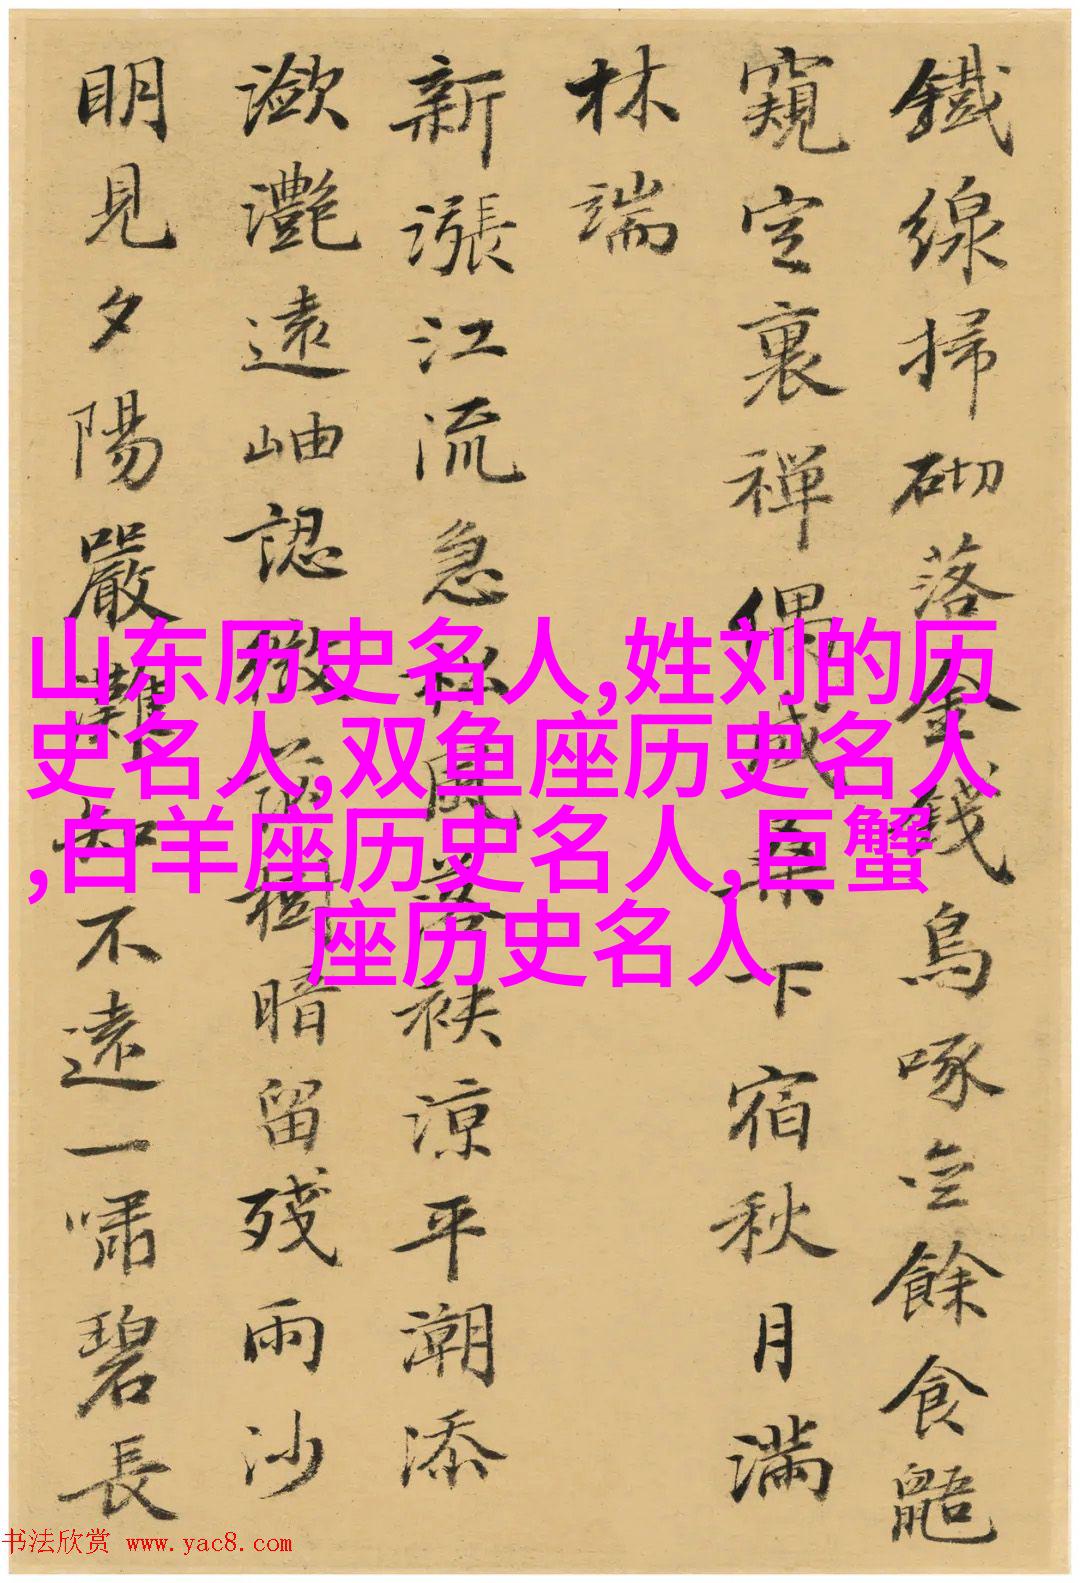 鐵線掃砌落金錢烏啄空餘食鼯
窺定裏禪偶成桑下宿秋月滿
林端
新漲江流急松風落袂涼平潮添
瀲灩遠岫認微茫樹暗留殘雨沙
明見夕陽嚴灘知不遠一嘯碧長
山东历史名人,姓刘的历
史名人,双鱼座历史名人
,白羊座历史名人,巨蟹
座历史名人
书法欣赏 www.yac8.com